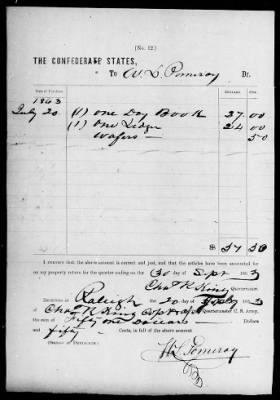 [No. 12.]
THE CONFEDERATE STATES,
To W. L. Pomeroy Dr.
DATE OF PURCHASE. DOLLARS. CTS.
1863
July 20 (1) One Day Book 27.00
(1) One Ledger 24.00
Wafers 50
$ 51 50
I CERTIFY that the above account is correct and just, and that the articles have been accounted for
on my property return for the quarter ending on the (30 Sept 1863
Chas R King Quartermaster.
RECEIVED at Raleigh the 20 1863 of
Chas R King Capt & Quartermaster C. S. Army,
the sum of Fifty One Dollars Dollars
and fifty Cents, in full of the above account.
[SIGNED IN DUPLICATE.]
W L Pomeroy